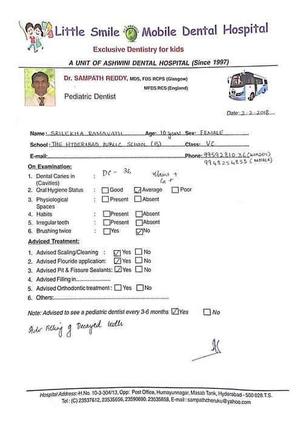 Little Smile Mobile Dental Hospital
Exclusive Dentistry for kids
A UNIT OF ASHWINI DENTAL HOSPITAL (Since 1997)
Dr. SAMPATH REDDY, MDS, FDS RCPS (Glasgow)
MFDS RCS (England)
Pediatric Dentist
Date: 3-2-2018
Name: SRILEKHA RAMAVATH Age: 10 years Sex: FEMALE
School: THE HYDERABAD PUBLIC SCHOOL (B) Class: VC
E-mail: Phone:
On Examination:
1. Dental Caries in DC - 36
(Cavities)
2. Oral Hygiene Status Good Average Poor
3. Physiological Present Absent
Spaces
4. Habits Present Absent
5. Irregular teeth Present Absent
6. Brushing twice Yes No
Advised Treatment:
1. Advised Scaling/Cleaning : Yes No
2. Advised Fluoride application: Yes No
3. Advised Pit & Fissure Sealants: Yes No
4. Advised Filling in
5. Advised Orthodontic treatment : Yes No
6. Others:
Note: Advised to see a pediatric dentist every 3-6 months Yes No
Adv filling of Decayed teeth
Hospital Address: H.No. 10-3-304/13, Opp: Post Office, Humayunnagar, Masab Tank, Hyderabad - 500 028 T.S.